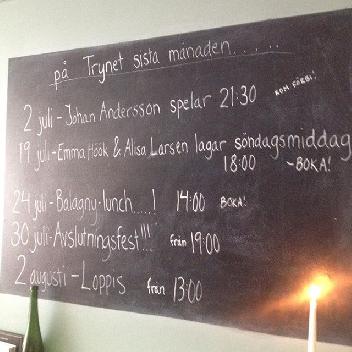 på Trynet sista månaden.....
2 juli - Johan Andersson spelar 21:30 KOM FÖRBI!
19 juli - Emma Höök & Alisa Larsen lagar söndagsmiddag
18:00 - BOKA!
24 juli - Balagny-lunch.....! 14:00 BOKA!
30 juli - Avslutningsfest!!! från 19:00
2 augusti - Loppis från 13:00